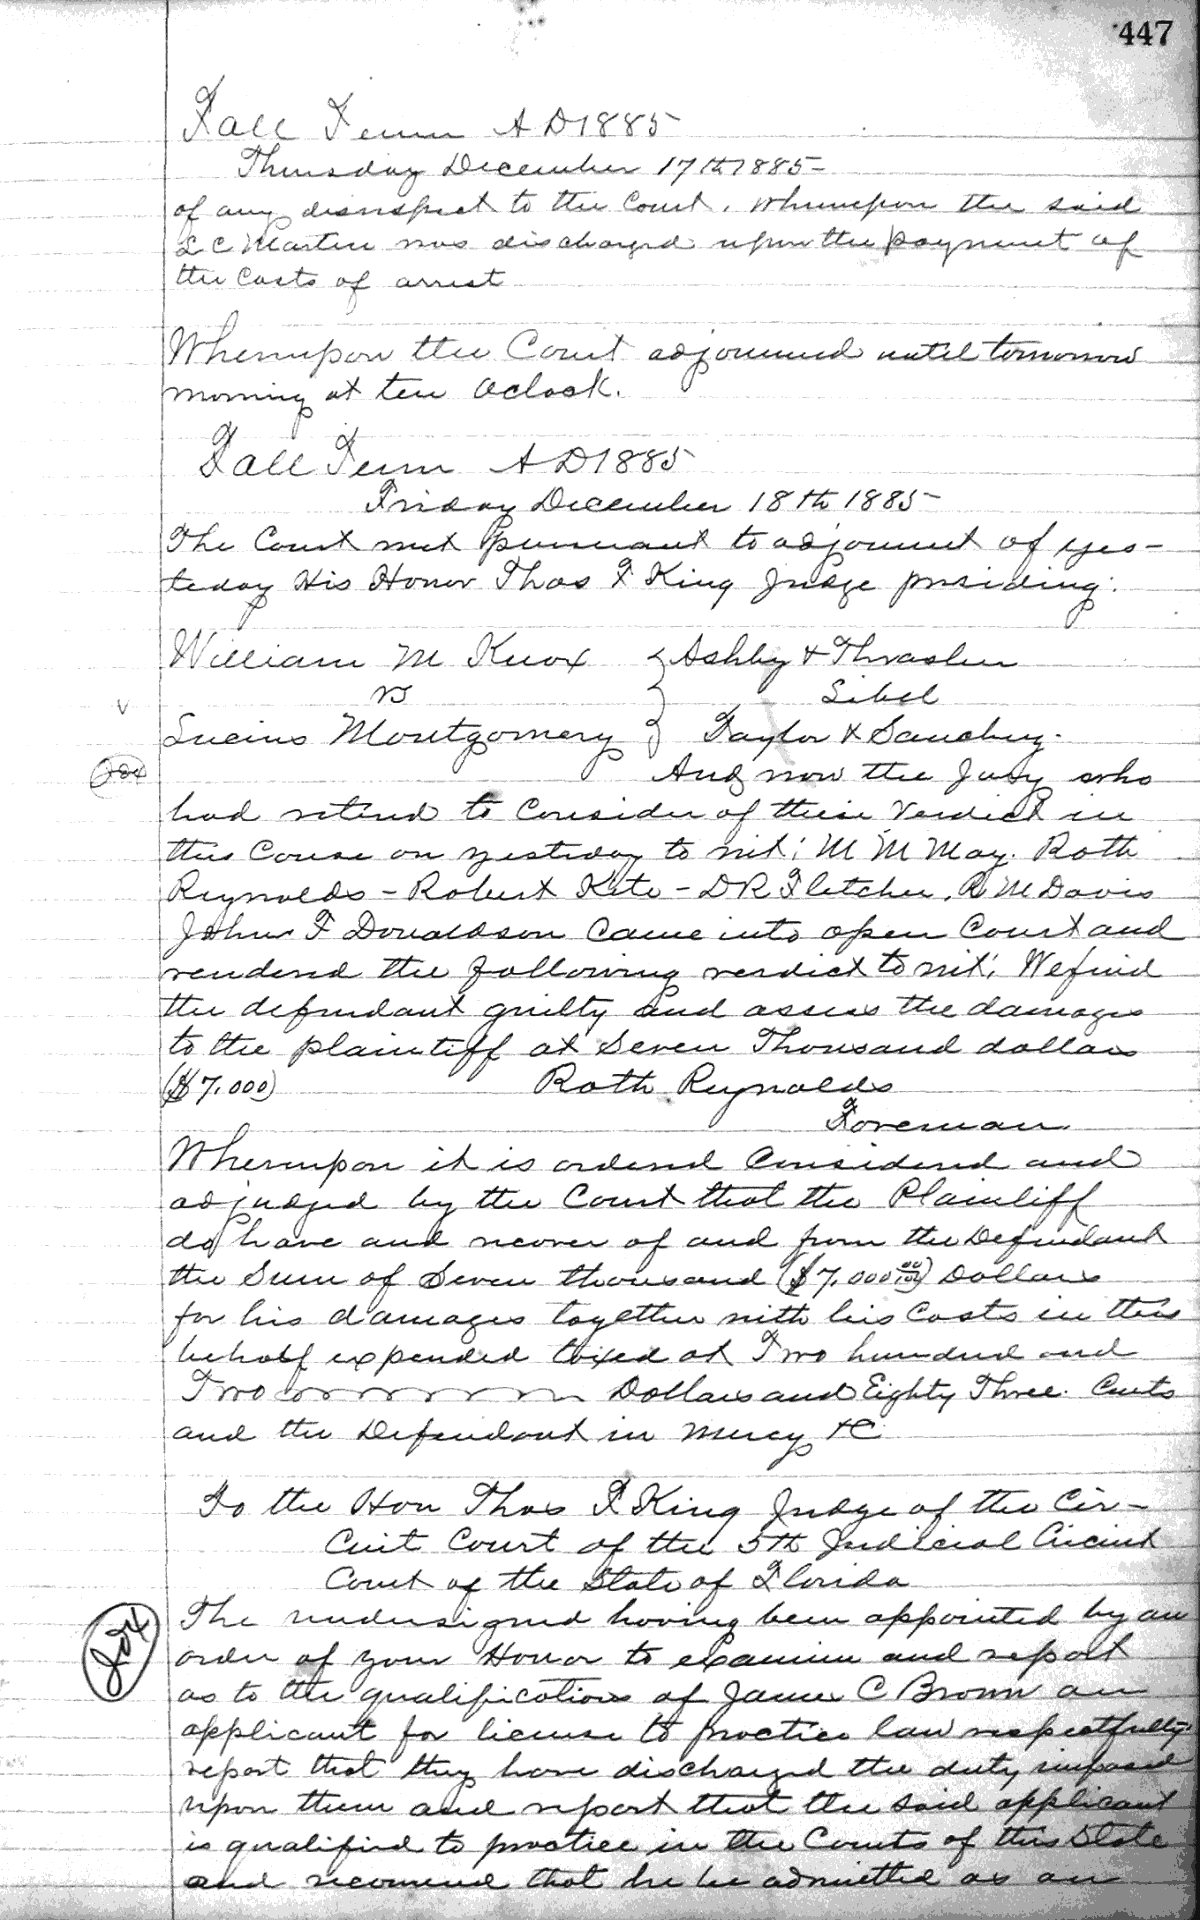 447
Fall Term A D 1885
Thursday December 17th 1885
of any disrespect to the Court. Whereupon the said
L C Martin was discharged upon the payment of
the Costs of arrest
Whereupon the Court adjourned until tomorrow
morning at ten Oclock.
Fall Term A D 1885
Friday December 18th 1885
The Court met pursuant to adjournment of yes-
teday His Honor Thos F King Judge presiding.
William M Knox } Ashby & Thrasher
vs } Libel
v
Lucius Montgomery } Taylor & Sanchez.
And now the Jury who
had retired to Consider of their Verdict in
this Cause on yesteday to wit; M M May. Roth
Reynolds - Robert Kite - D R Fletcher. R M Davis
John F Donaldson Came into open Court and
rendered the following verdict to wit; We find
the defendant guilty and assess the damages
to the plaintiff at Seven Thousand dollars
($7.000) Roth Reynolds
Foreman
Whereupon it is ordered Considered and
adjudged by the Court that the Plaintiff
do have and recover of and from the Defendant
the Sum of Seven thousand ($7.000 00/100) Dollars
for his damages together with his Costs in this
behalf expended taxed at Two hundred and
Two Dollars and Eighty Three Cents
and the Defendant in Mercy &C
To the Hon Thos F King Judge of the Cir-
Cuit Court of the 5th Judicial Circuit
Court of the State of Florida
The undersigned having been appointed by an
order of your Honor to examine and report
as to the qualifications of James C Brown an
applicant for license to practice law respectfully
report that they have discharged the duty imposed
upon them and report that the said applicant
is qualified to practice in the Courts of this State
and recomend that he be admitted as an